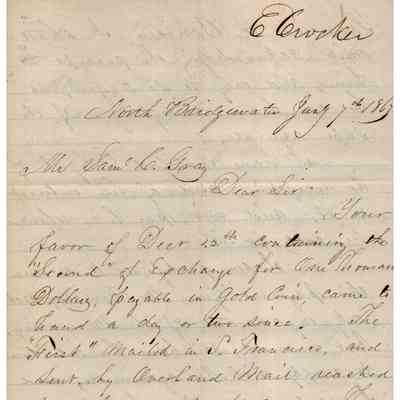 E Crocker
North Bridgewater Jany 7th 186
Mr Saml C. Gray
Dear Sir:
Your
favor of Decr 12th containing the
"Second" of Exchange for One Thousand
Dollars, payable in Gold Coin, came to
hand a day or two since. The
"First" Mailed in S. Francisco, and
sent by Overland Mail reached